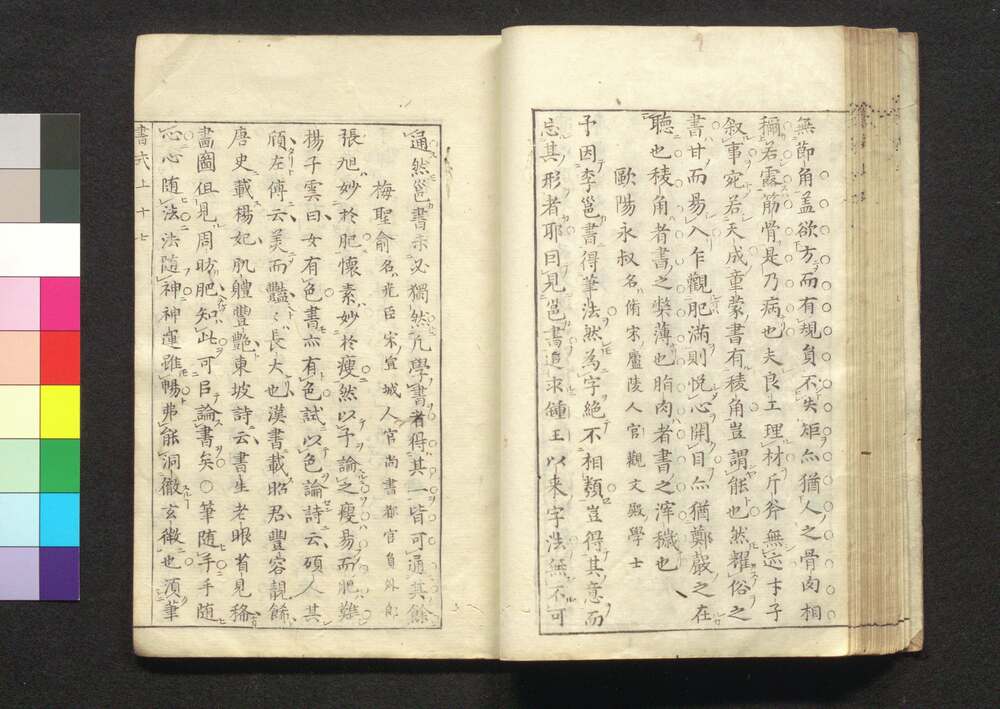 無節角盖欲方而有規負不失矩亦猶人之骨肉相
稱若露筋骨是乃病也夫良工理材斤斧無迹才子
叙事宛若天成童蒙書有稜角豈謂能也然耀俗之
書甘而易入乍觀肥滿則悅心開目亦猶鄭聲之在
聽也稜角者書之獘薄也脂肉者書之滓穢也
歐陽永叔名脩宋廬陵人官觀文殿學士
予因李邕書得筆法然為字絶不相類豈得其意而
忘其形者耶曰見邕書追求鍾王以来字法無不可
通然邕書未必獨然凢學書者得其一皆可通其餘
梅聖俞名尭臣宋宣城人官尚書都官負外郎
張旭妙於肥懷素妙於瘦然以予論之瘦易而肥難
楊子雲曰女有色書亦有色試以色論詩云碩人其
頎左傳云美而豔豔長大也漢書載昭君豐容靚餙
唐史載楊妃肌軆豐艶東坡詩云書生老眼省見稀
畵圖但見周昉肥知此可㠯論書矣○筆隨手手随
心心随法法随神神運雖暢弗能洞徹玄微也湏筆
書式上十七